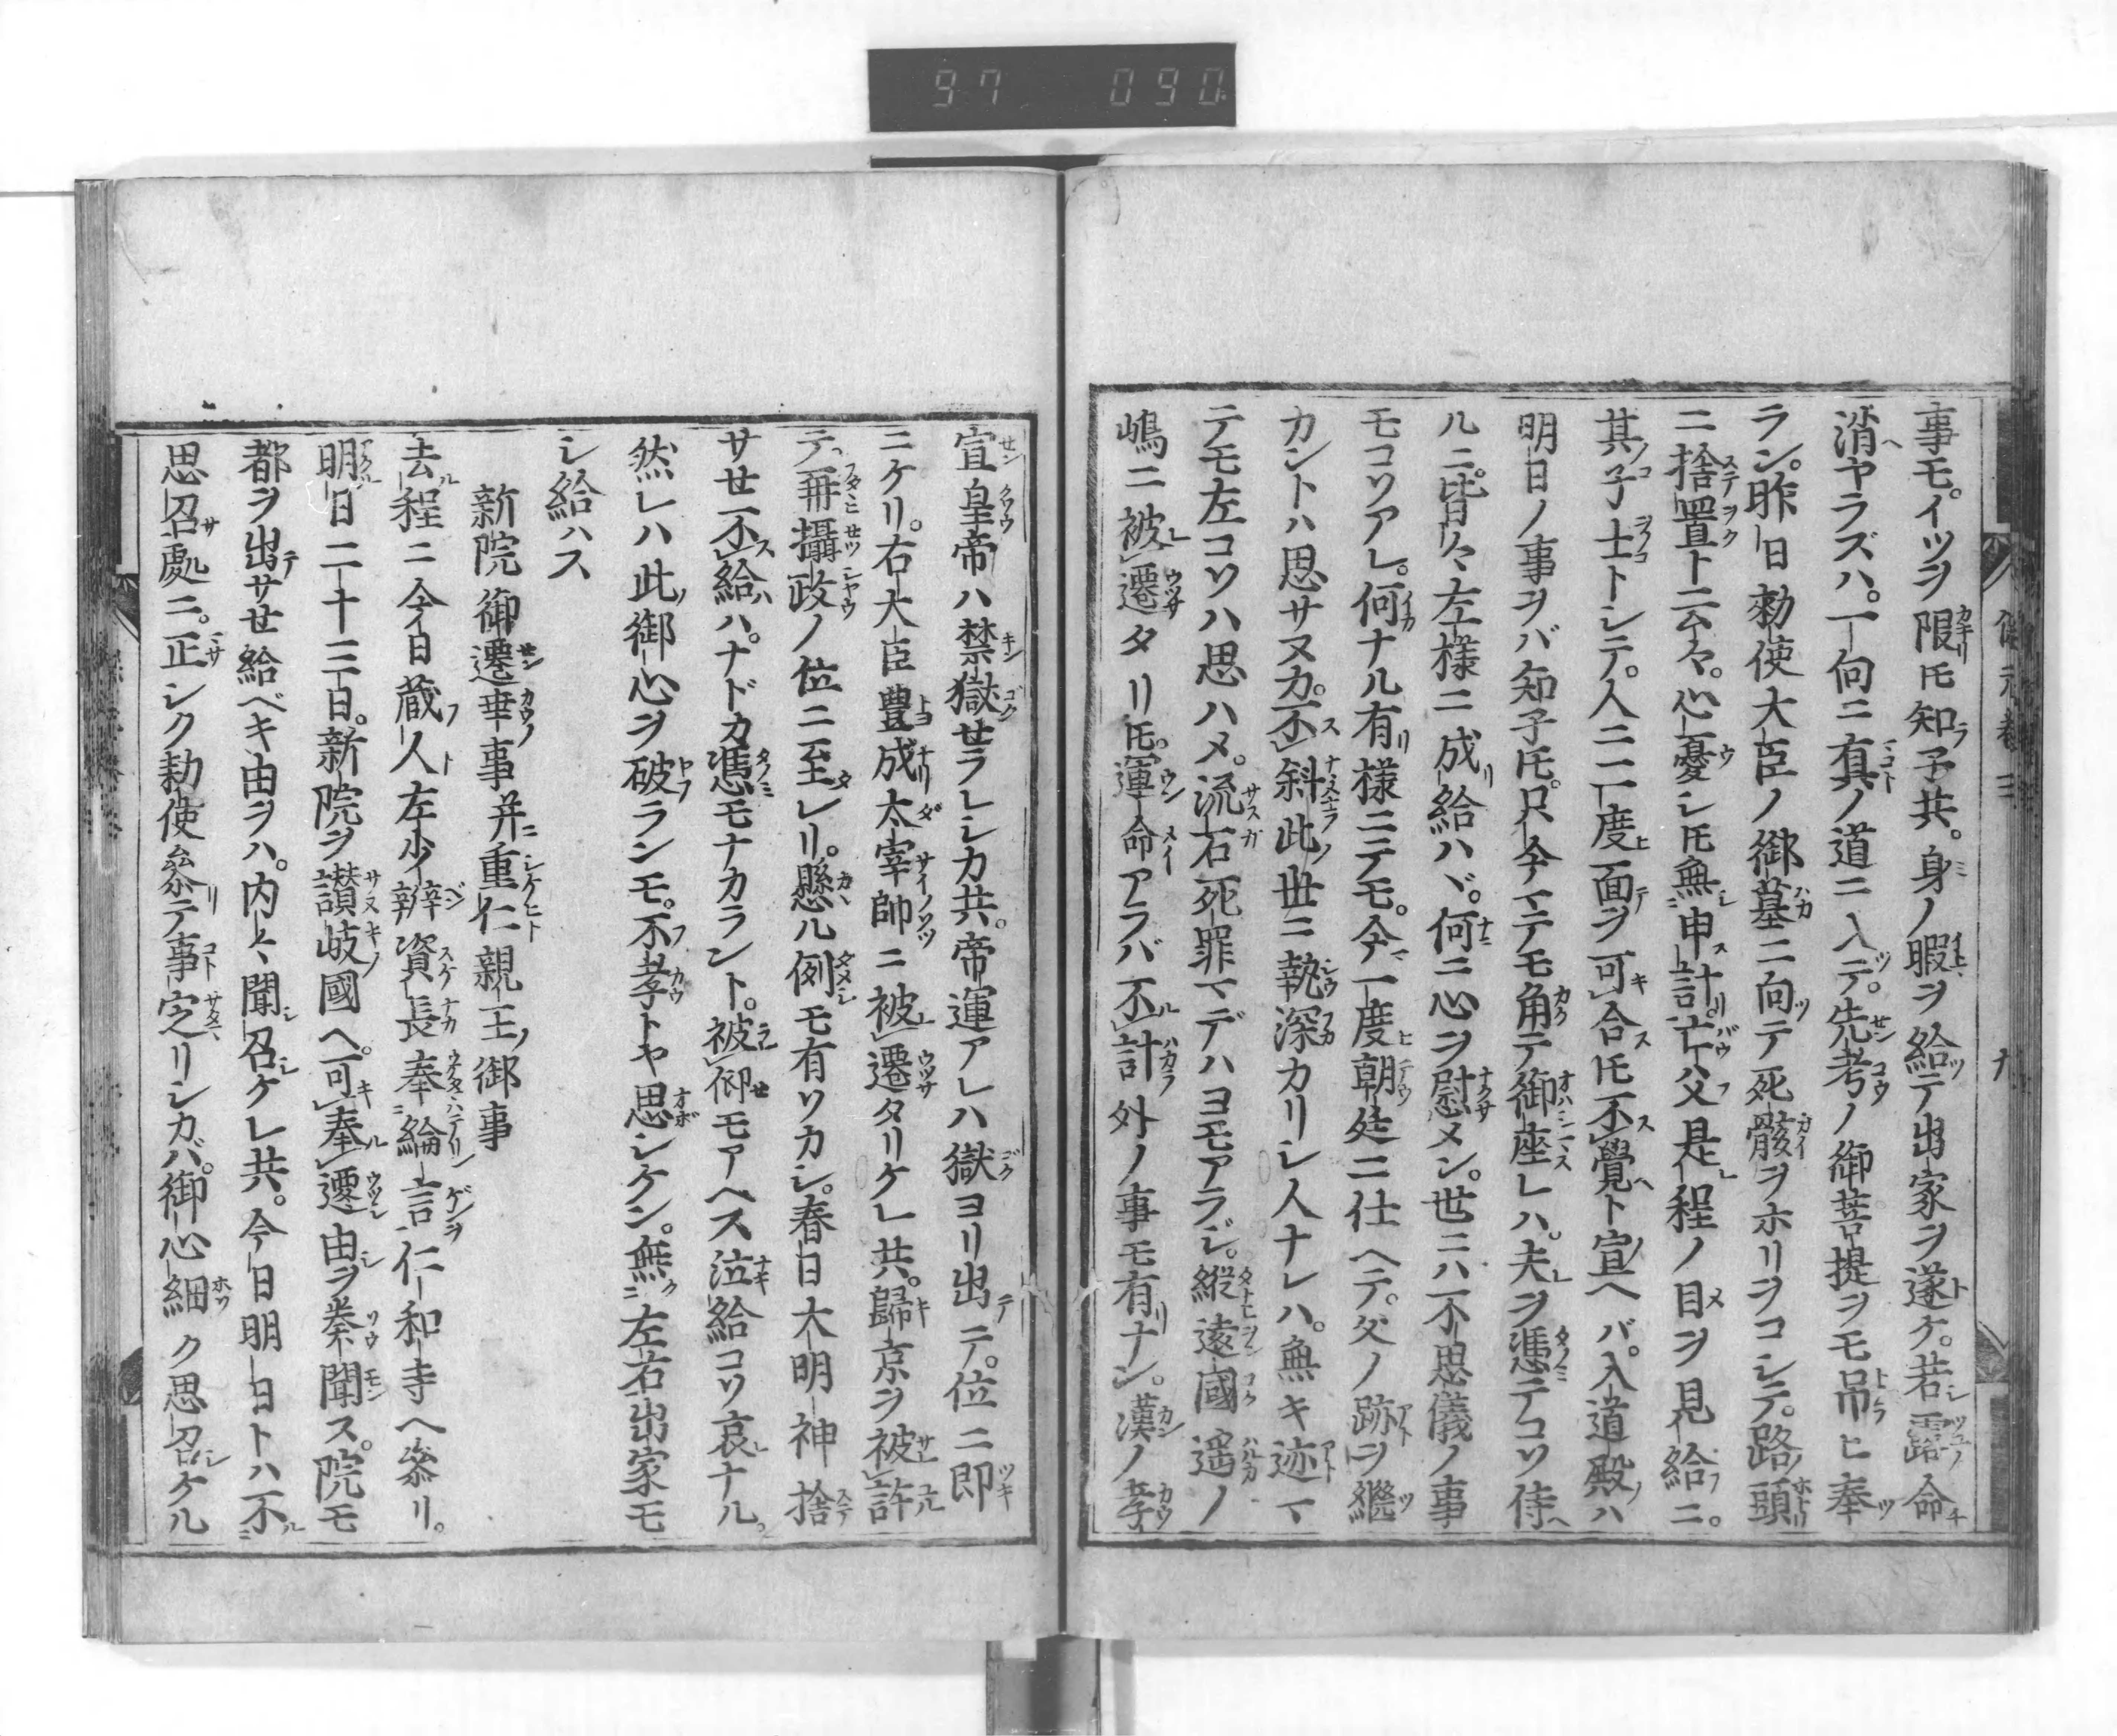 97 090
事モ。イツヲ限トモ知ラ子共。身ノ暇ヲ給テ出家ヲ遂ケ。若露命
消ヤラズハ。一向ニ真ノ道ニ入テ。先考ノ御菩提ヲモ吊ヒ奉
ラン。昨日勅使大臣ノ御墓ニ向テ死骸ヲホリヲコシテ。路頭
ニ捨置ト云々。心憂シトモ無申計。亡父是程ノ目ヲ見給ニ。
其子士トシテ。人ニ二度面ヲ可合トモ不覺ト宣ヘバ。入道殿ハ
明日ノ事ヲバ知子トモ。只今マテモ角テ御座レハ。夫ヲ憑テコソ侍
ルニ。皆々左様ニ成給ハヾ。何ニ心ヲ慰メン。世ニハ不思儀ノ事
モコソアレ。何ナル有様ニテモ。今一度朝廷ニ仕ヘテ。父ノ跡ヲ繼
カントハ思サヌカ。不斜此世ニ執深カリシ人ナレハ。無キ迹マ
テモ左コソハ思ハメ。流石死罪マデハヨモアラジ。縱遠國遥ノ
嶋ニ被遷タリトモ。運命アラバ不計外ノ事モ有ナン。漢ノ孝
宣皇帝ハ禁獄せラレシカ共。帝運アレハ獄ヨリ出テ。位ニ即
ニケリ。右大臣豊成太宰帥ニ被遷タリケレ共。歸京ヲ被許
テ。再攝政ノ位ニ至レリ。懸ル例モ有ソカシ。春日大明神捨
サせ不給ハ。ナドカ憑モナカラント。被仰モアヘス泣給コソ哀ナル。
然レハ此御心ヲ破ランモ。不孝トヤ思シケン。無左右出家モ
シ給ハス
新院御遷幸事并重仁親王ノ御事
去程ニ今日蔵人左少辨資長奉綸言仁和寺ヘ参リ。
明日二十三日。新院ヲ讃岐國ヘ。可奉遷由ヲ奏聞ス。院モ
都ヲ出サせ給ベキ由ヲハ。内々聞召ケレ共。今日明日トハ不
思召處ニ。正シク勅使参テ事定リシカバ。御心細ク思召ケル